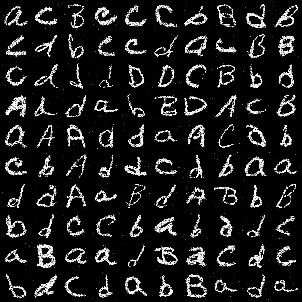 a C B C C C b B d B
C d b C C d a C B B
C d d d D D C B b d
A d d a b B D A C B
a A A a d a A C D b
C b A d d C d b a a
d d A a B d A B b B
b d C C b a b d d C
a B a a d B a C d C
b d C d a b B a d a